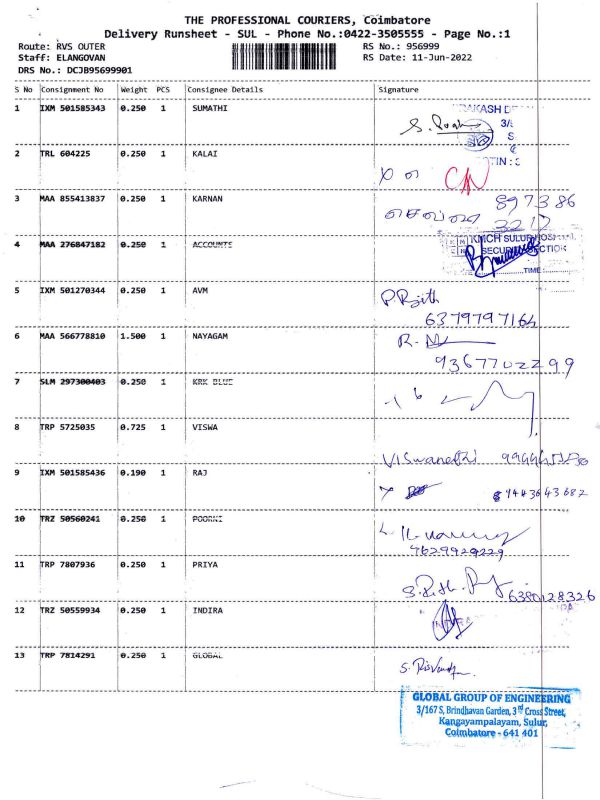 THE PROFESSIONAL COURIERS, Coimbatore
Delivery Runsheet - SUL - Phone No.:0422-3505555 - Page No.:1
Route: RVS OUTER RS No.: 956999
Staff: ELANGOVAN RS Date: 11-Jun-2022
DRS No.: DCJB95699901
S No Consignment No Weight PCS Consignee Details Signature
1 IXM 501585343 0.250 1 SUMATHI
2 TRL 604225 0.250 1 KALAI
TIN :
3 MAA 855413837 0.250 1 KARNAN 897386
3217
4 MAA 276847182 0.250 1 ACCOUNTS
KMCH SULUR HOSPITAL
SECURITY SECTION
TIME:
5 IXM 501270344 0.250 1 AVM
6379797164
6 MAA 566778810 1.500 1 NAYAGAM
9367702299
7 SLM 297300403 0.250 1 KRK BLUE
8 TRP 5725035 0.725 1 VISWA
9 IXM 501585436 0.190 1 RAJ
9443643682
10 TRZ 50560241 0.250 1 POORNI
9629929229
11 TRP 7807936 0.250 1 PRIYA
6380128326
12 TRZ 50559934 0.250 1 INDIRA
13 TRP 7814291 0.250 1 GLOBAL
GLOBAL GROUP OF ENGINEERING
3/167 S, Brindhavan Garden, 3rd Cross Street,
Kangayampalayam, Sulur,
Coimbatore - 641 401